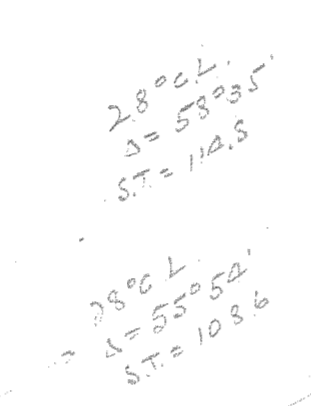 28° C.L.
Δ = 58° 35'
S.T. = 114.8
28° C L.
Δ = 55° 54'
S.T. = 108.6